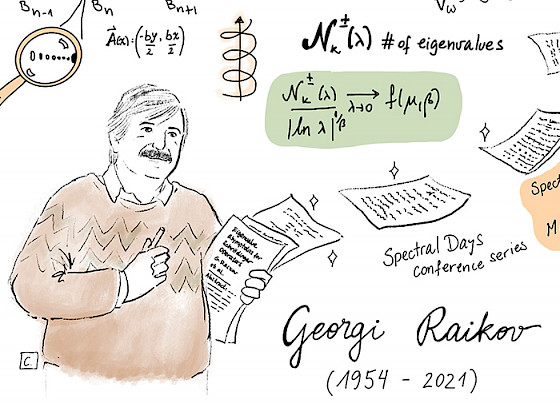 Bn-1 Bn Bn+1
A(x) = (-by/2, bx/2)
Vω
𝒩κ±(λ) # of eigenvalues
𝒩κ±(λ) / |ln λ|^1/β → λ→0 f(μ,β)
Eigenvalue
Asymptotics for
Schrödinger
Operators
G. Raikov
et al.
Abstract:
Spect
M
Spectral Days
conference series
Georgi Raikov
(1954 - 2021)
C.